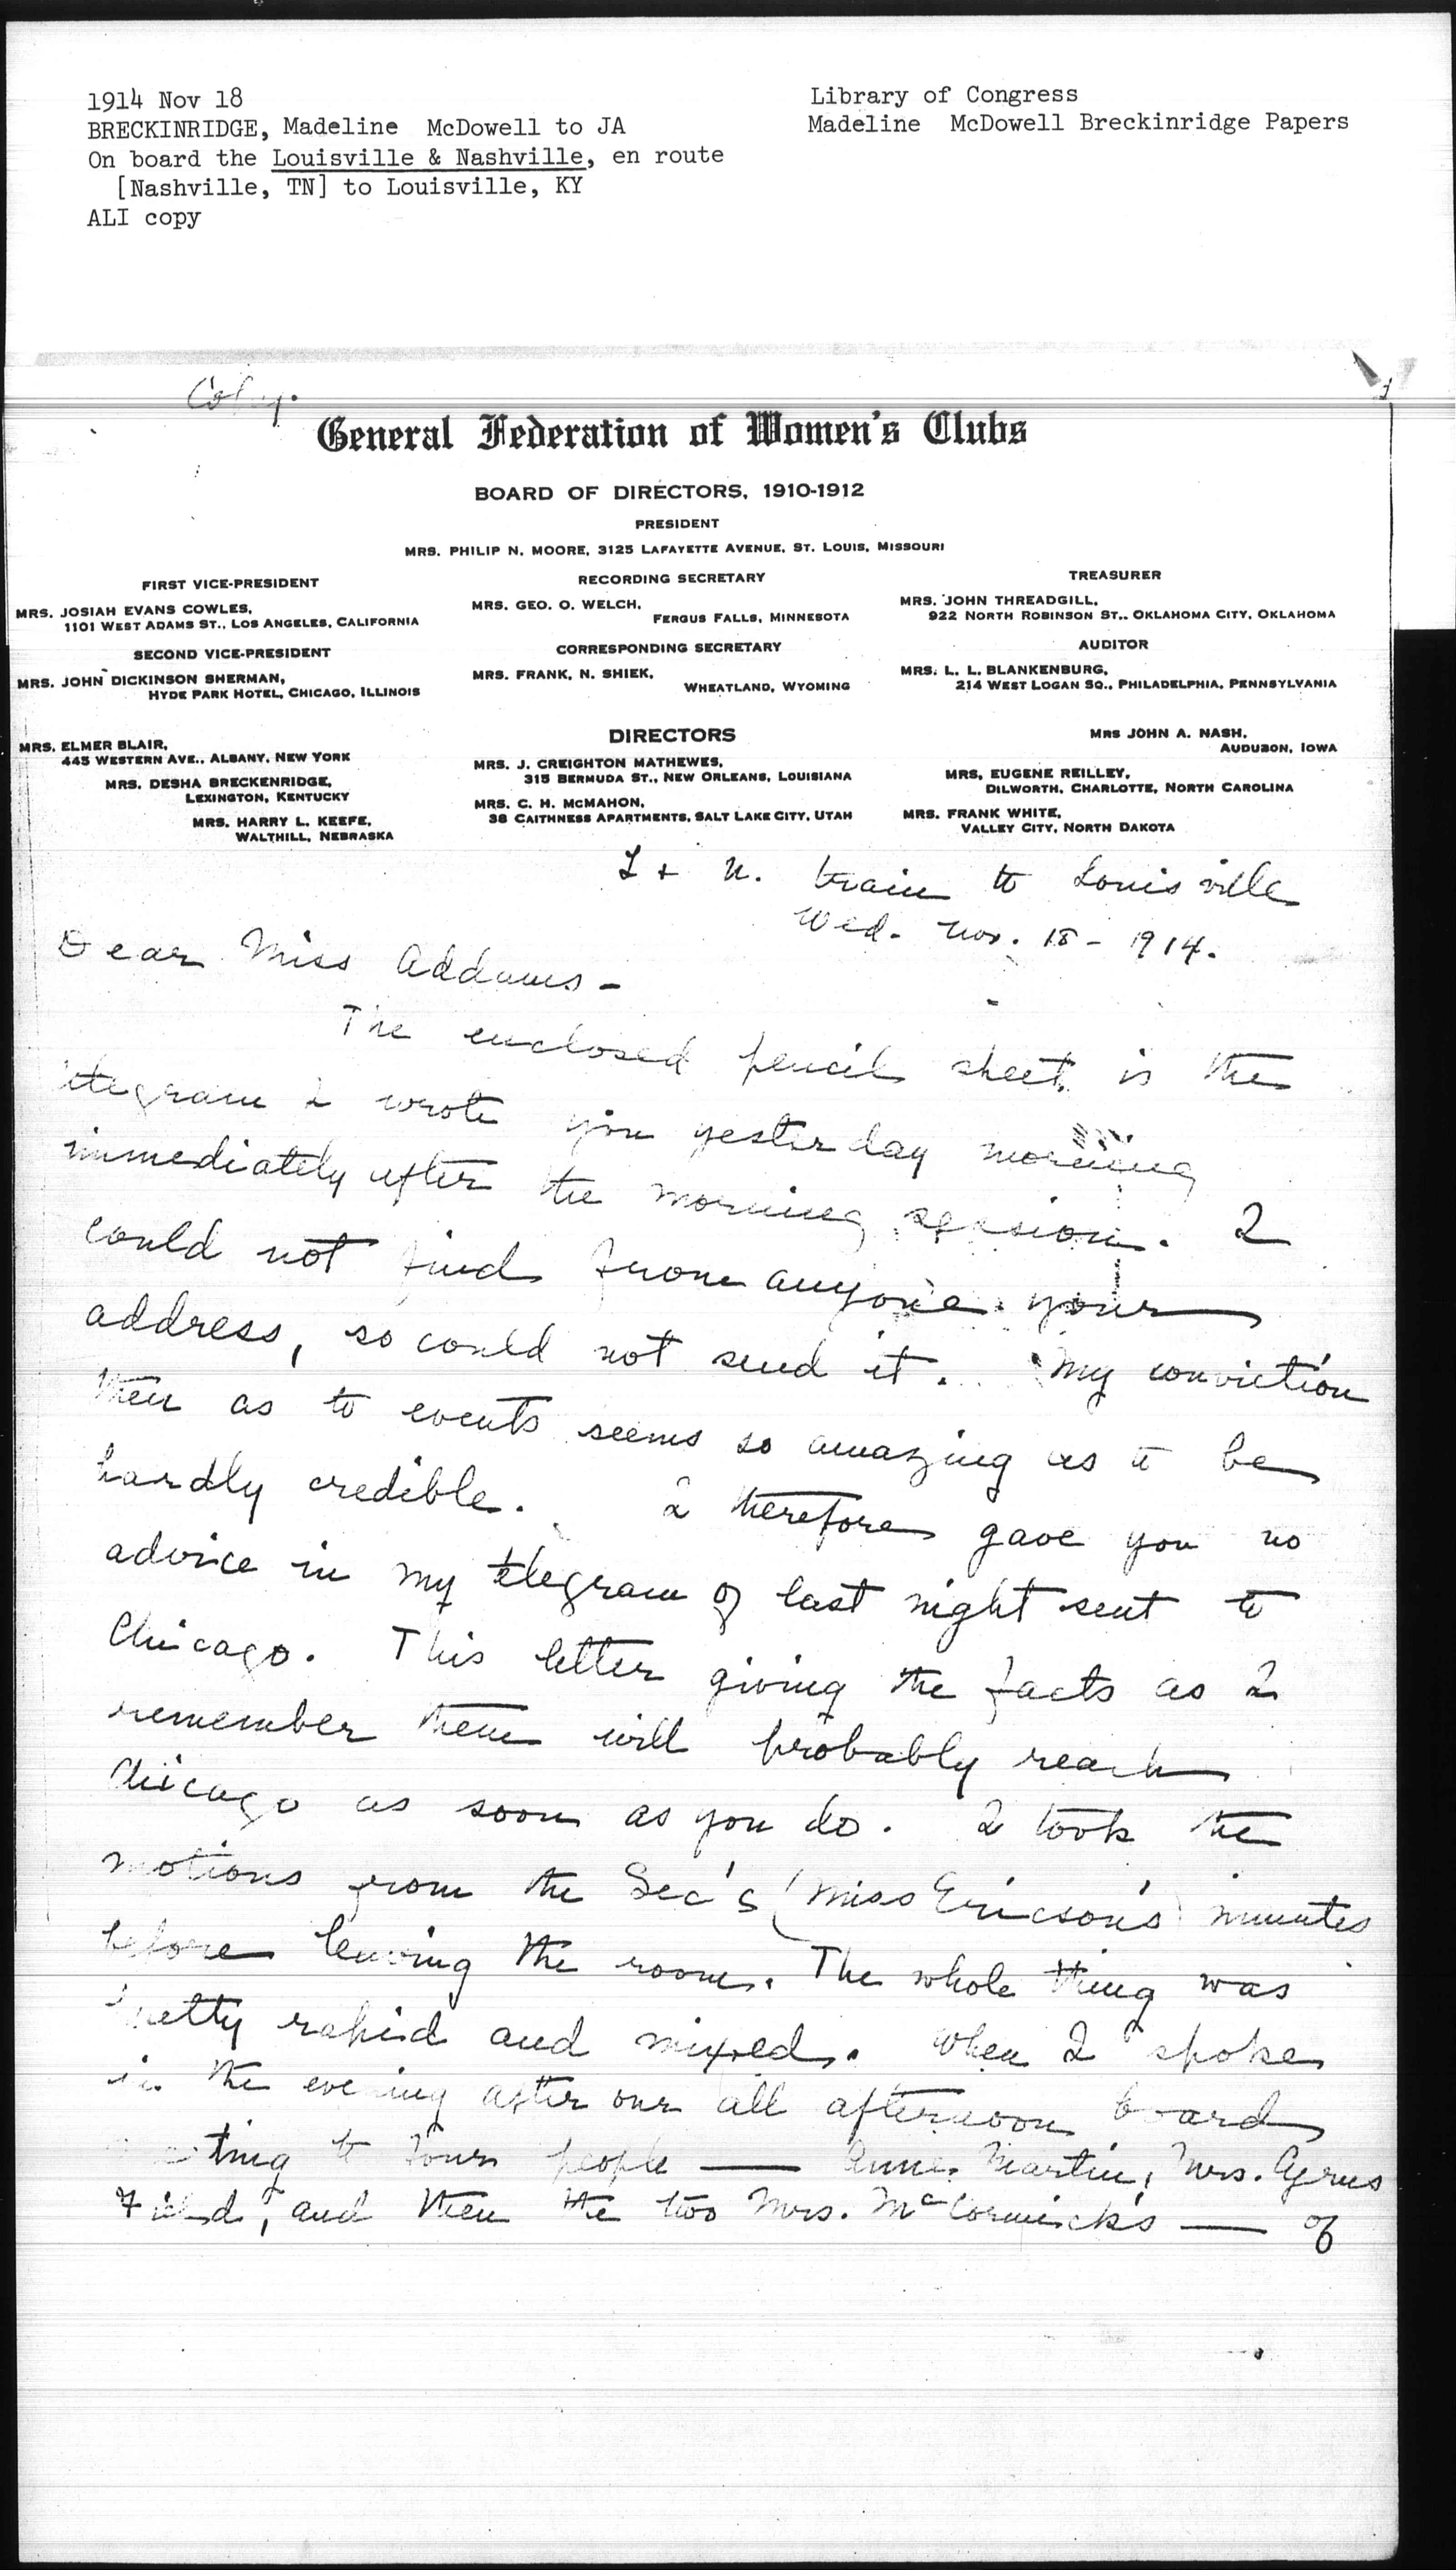 1914 Nov 18
BRECKINRIDGE, Madeline McDowell to JA
On board the Louisville & Nashville, en route
[Nashville, TN] to Louisville, KY
ALI copy
Library of Congress
Madeline McDowell Breckinridge Papers
Copy.
1
General Federation of Women's Clubs
BOARD OF DIRECTORS, 1910-1912
PRESIDENT
MRS. PHILIP N. MOORE, 3125 LAFAYETTE AVENUE, ST. LOUIS, MISSOURI
FIRST VICE-PRESIDENT
MRS. JOSIAH EVANS COWLES,
1101 WEST ADAMS ST., LOS ANGELES, CALIFORNIA
SECOND VICE-PRESIDENT
MRS. JOHN DICKINSON SHERMAN,
HYDE PARK HOTEL, CHICAGO, ILLINOIS
RECORDING SECRETARY
MRS. GEO. O. WELCH,
FERGUS FALLS, MINNESOTA
CORRESPONDING SECRETARY
MRS. FRANK, N. SHIEK,
WHEATLAND, WYOMING
TREASURER
MRS. JOHN THREADGILL,
922 NORTH ROBINSON ST., OKLAHOMA CITY, OKLAHOMA
AUDITOR
MRS. L. L. BLANKENBURG,
214 WEST LOGAN SQ., PHILADELPHIA, PENNSYLVANIA
DIRECTORS
MRS. ELMER BLAIR,
445 WESTERN AVE., ALBANY, NEW YORK
MRS. DESHA BRECKENRIDGE,
LEXINGTON, KENTUCKY
MRS. HARRY L. KEEFE,
WALTHILL, NEBRASKA
MRS. J. CREIGHTON MATHEWES,
315 BERMUDA ST., NEW ORLEANS, LOUISIANA
MRS. C. H. McMAHON,
38 CAITHNESS APARTMENTS, SALT LAKE CITY, UTAH
MRS JOHN A. NASH,
AUDUBON, IOWA
MRS. EUGENE REILLEY,
DILWORTH, CHARLOTTE, NORTH CAROLINA
MRS. FRANK WHITE,
VALLEY CITY, NORTH DAKOTA
L + N. train to Louisville
Wed. Nov. 18 - 1914.
Dear Miss Addams -
The enclosed pencil sheet is the
telegram I wrote you yesterday morning
immediately after the morning session. I
could not find from anyone your
address, so could not send it. My conviction
then as to events seems so amazing as to be
hardly credible. I therefore gave you no
advice in my telegram of last night sent to
Chicago. This letter giving the facts as I
remember them will probably reach
Chicago as soon as you do. I took the
motions from the Sec's (Miss Ericson's) minutes
before leaving the room. The whole thing was
pretty rapid and mixed. When I spoke
in the evening after our all afternoon board
meeting to four people — Anne Martin, Mrs.
Field, and then the two Mrs. McCormick's — of